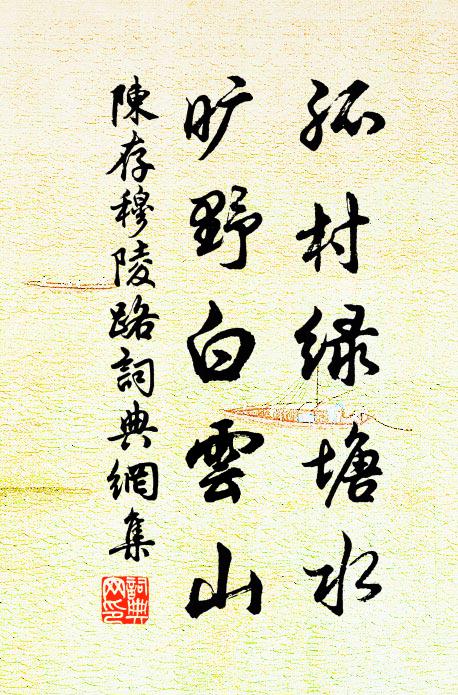 孤村綠塘水
旷野白雲山
陳存穆陵路詞典網集
詞典網印